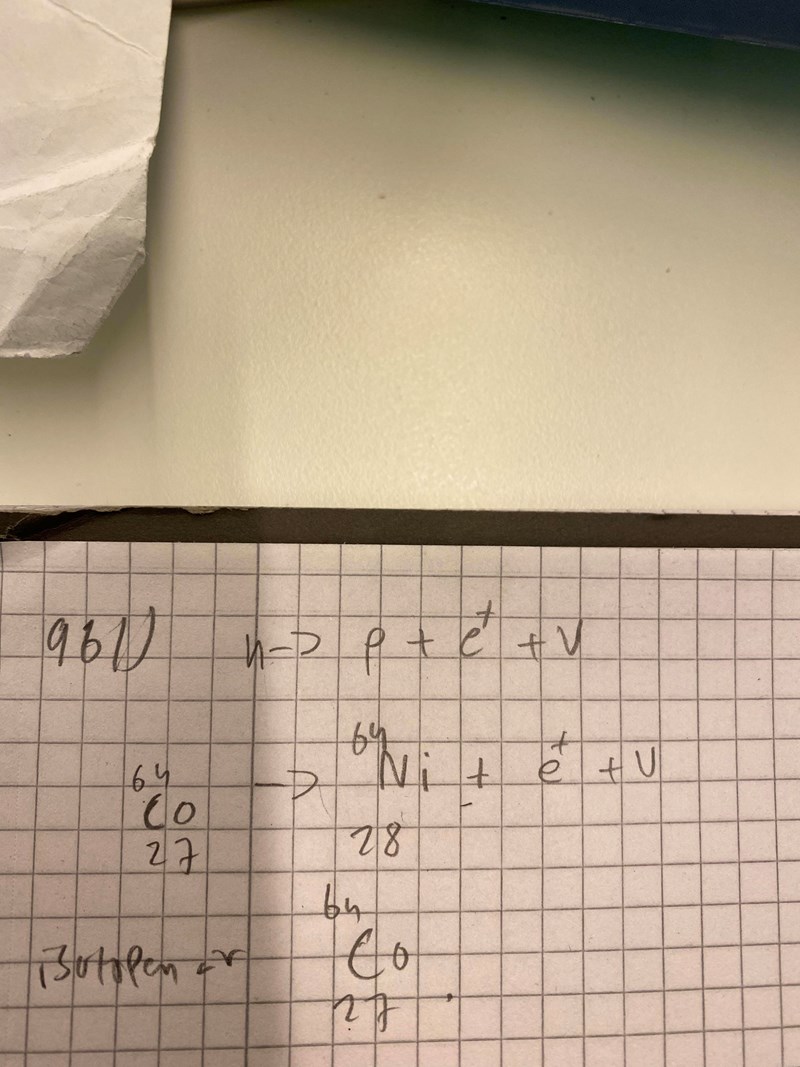 961) n -> p + e⁺ + ν
⁶⁴₂₇Co -> ⁶⁴₂₈Ni + e⁺ + ν
isotopen är ⁶⁴₂₇Co.